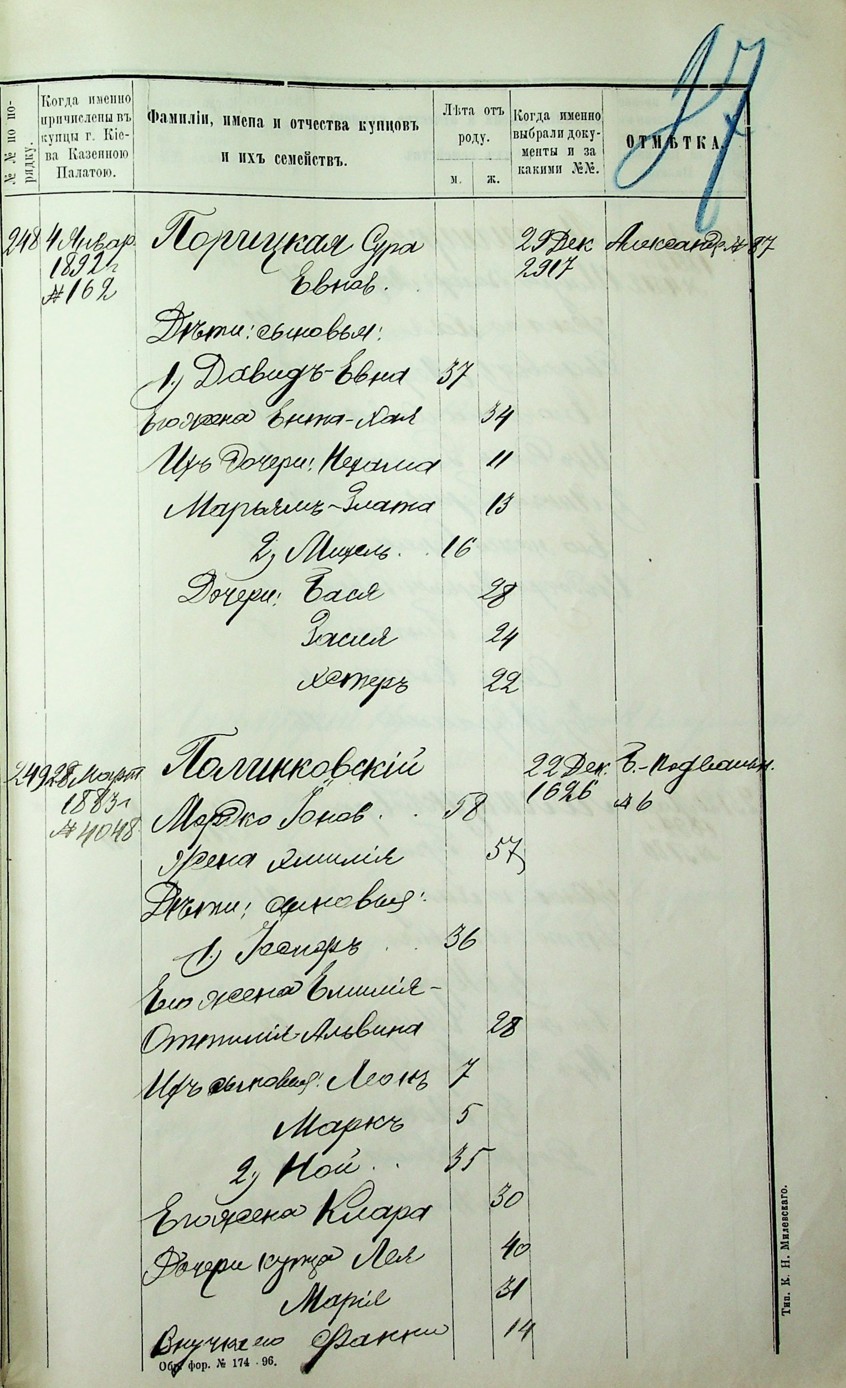 27
№ № по порядку.
Когда именно причислены въ купцы г. Кіева Казенною Палатою.
Фамиліи, имена и отчества купцовъ и ихъ семействъ.
Лѣта отъ роду.
м.
ж.
Когда именно выбрали документы и за какими №№.
ОТМѢТКА.
248 4 Январ. Порицкая Сура 29 Дек Александр. № 87
1892 г Евнов. 2917
№ 162
Дѣти: сыновья:
1) Давидъ-Евна 37
Его жена Ента-Хая 34
Ихъ дочери: Нехама 11
Марьямъ-Злата 13
2) Михель 16
Дочери: Бася 28
Засля 24
Хстеръ 22
249 28 Март Полинковскій 22 Дек. Б.-Подвальн.
1883 г Мордко Іонов. 58 1626 № 6
№ 4048
жена Эмилія 57
Дѣти: сыновья:
1) 36
Его жена Емилія-
Оттилія-Альвина 28
Ихъ сыновья: Леонъ 7
Маркъ 5
2) Ной 35
Его жена Клара 30
Дочери купца Лея 40
Марія 31
Внучка его Фанни 14
Обр. фор. № 174 - 96.
Тип. К. Н. Милевскаго.